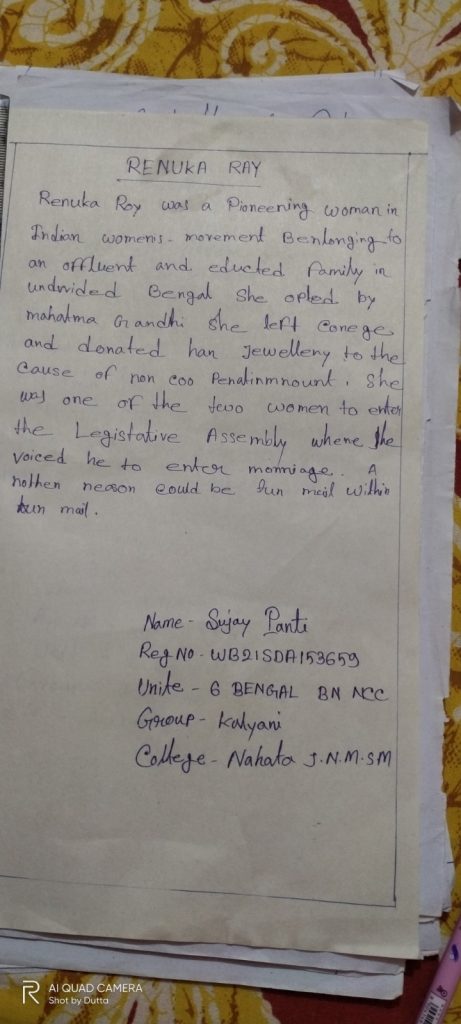 RENUKA RAY
Renuka Roy was a Pioneering woman in
Indian women's movement Benlonging to
an affluent and educted family in
undivided Bengal She opted by
mahatma Gandhi She left Conege
and donated han Jewelleny to the
Cause of non coo Penatinmnount. She
was one of the two women to enter
the Legistative Assembly whene She
voiced he to enter morniage. A
nothen neason could be fun mail within
fun mail.
Name - Sujay Panti
Reg No - WB21SDA153659
Unite - 6 BENGAL BN NCC
Group - Kalyani
College - Nahata J.N.M.SM
AI QUAD CAMERA
Shot by Dutta